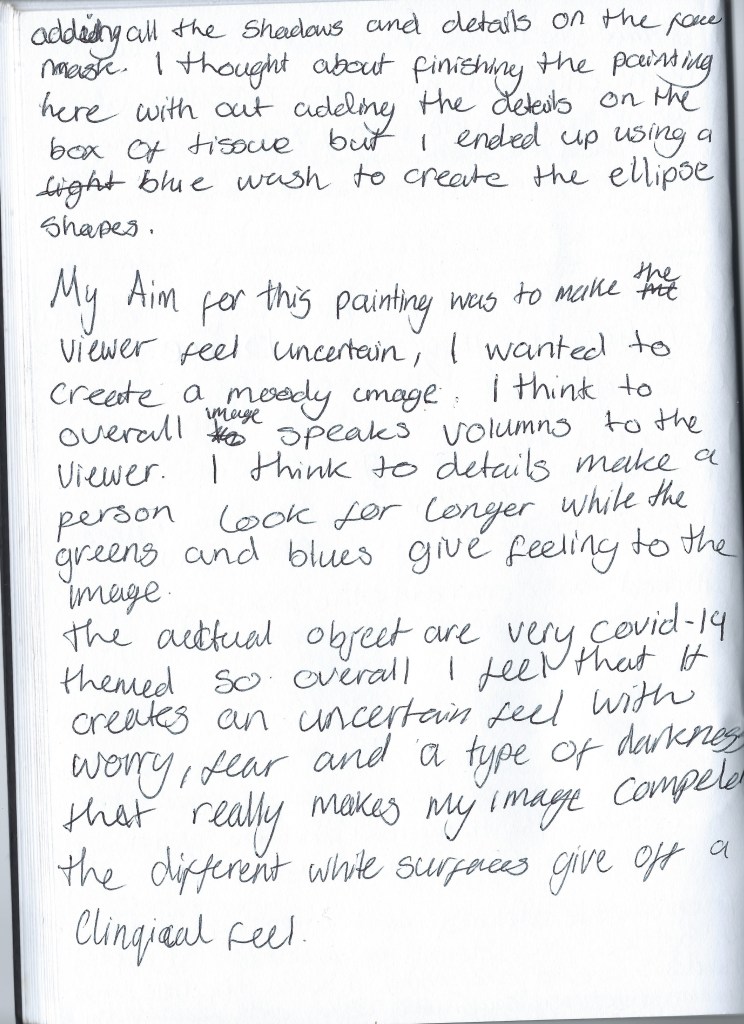 adding all the shadows and details on the face
mask. I thought about finishing the painting
here with out adding the details on the
box of tissue but I ended up using a
light blue wash to create the ellipse
shapes.
My Aim for this painting was to make the
viewer feel uncertain, I wanted to
create a moody image. I think to
overall image speaks volumns to the
viewer. I think to details make a
person look for longer while the
greens and blues give feeling to the
image.
the actual object are very covid-19
themed so overall I feel that it
creates an uncertain feel with
worry, fear and a type of darkness
that really makes my image compele
the different white surfaces give off a
Clingical feel.